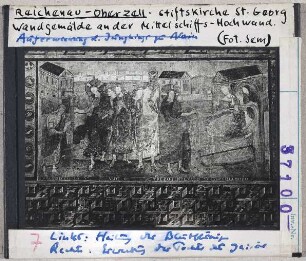 Reichenau-Oberzell. Stiftskirche St. Georg
Wandgemälde an der Mittelschiffs-Hochwand.
Auferweckung d. Jünglings zu Nain
(Fot. Sem)
57100
7 Links: Heilung der Blutflüssigen
Rechts: Erweckung der Tochter des Jairus